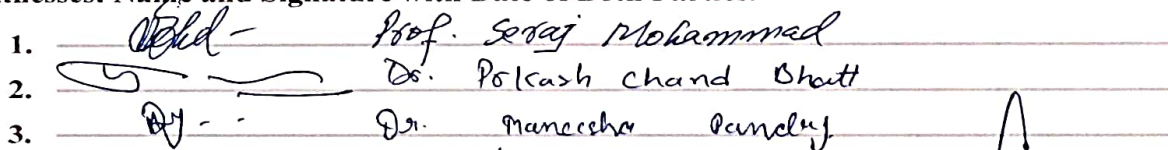 Witnesses: Name and Signature with Date of Both Parties:
1. Prof. Seraj Mohammad
2. Dr. Prkash Chand Bhatt
3. Dr. Maneesha Pandey